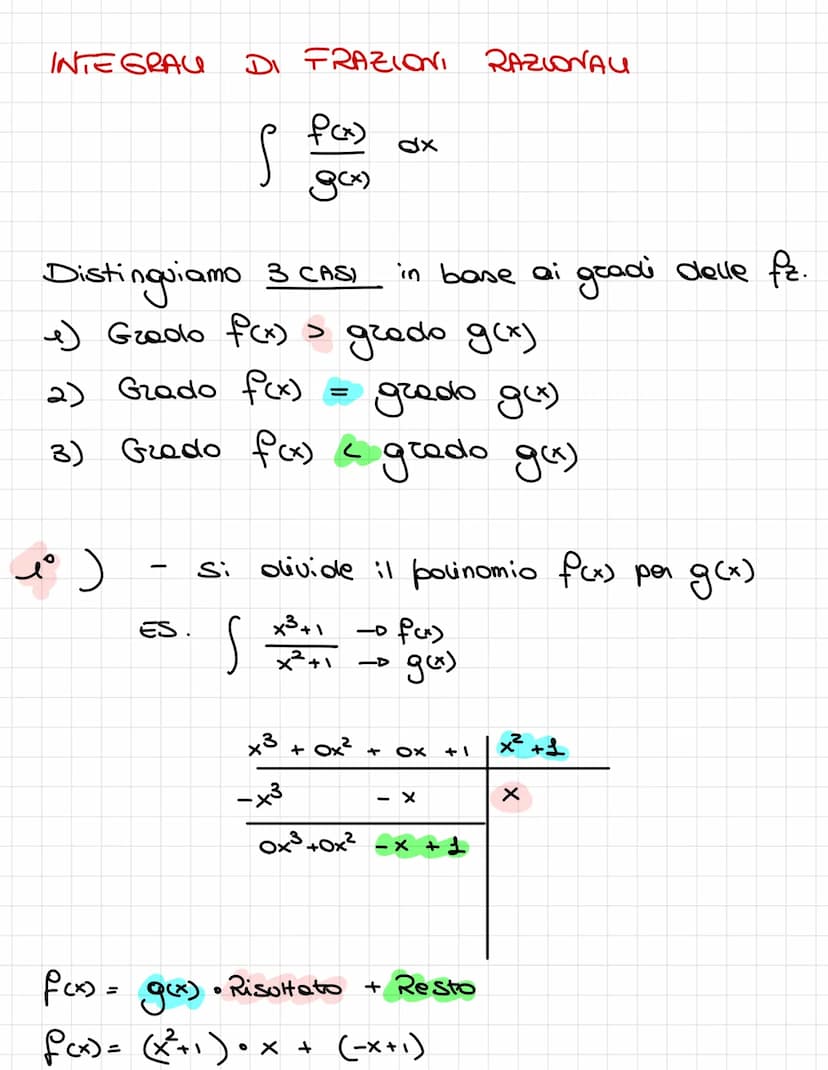 INTEGRALI DI FRAZIONI RAZIONALI
∫ f(x)/g(x) dx
Distinguiamo 3 CASI in base ai gradi delle fz.
1) Grado f(x) > grado g(x)
2) Grado f(x) = grado g(x)
3) Grado f(x) < grado g(x)
1°) - si divide il polinomio f(x) per g(x)
ES. ∫ x³+1 → f(x)
x²+1 → g(x)
x³ + 0x² + 0x +1 | x²+1
-x³ - x | x
0x³+0x² -x+1
f(x) = g(x) · Risultato + Resto
f(x) = (x²+1) · x + (-x+1)